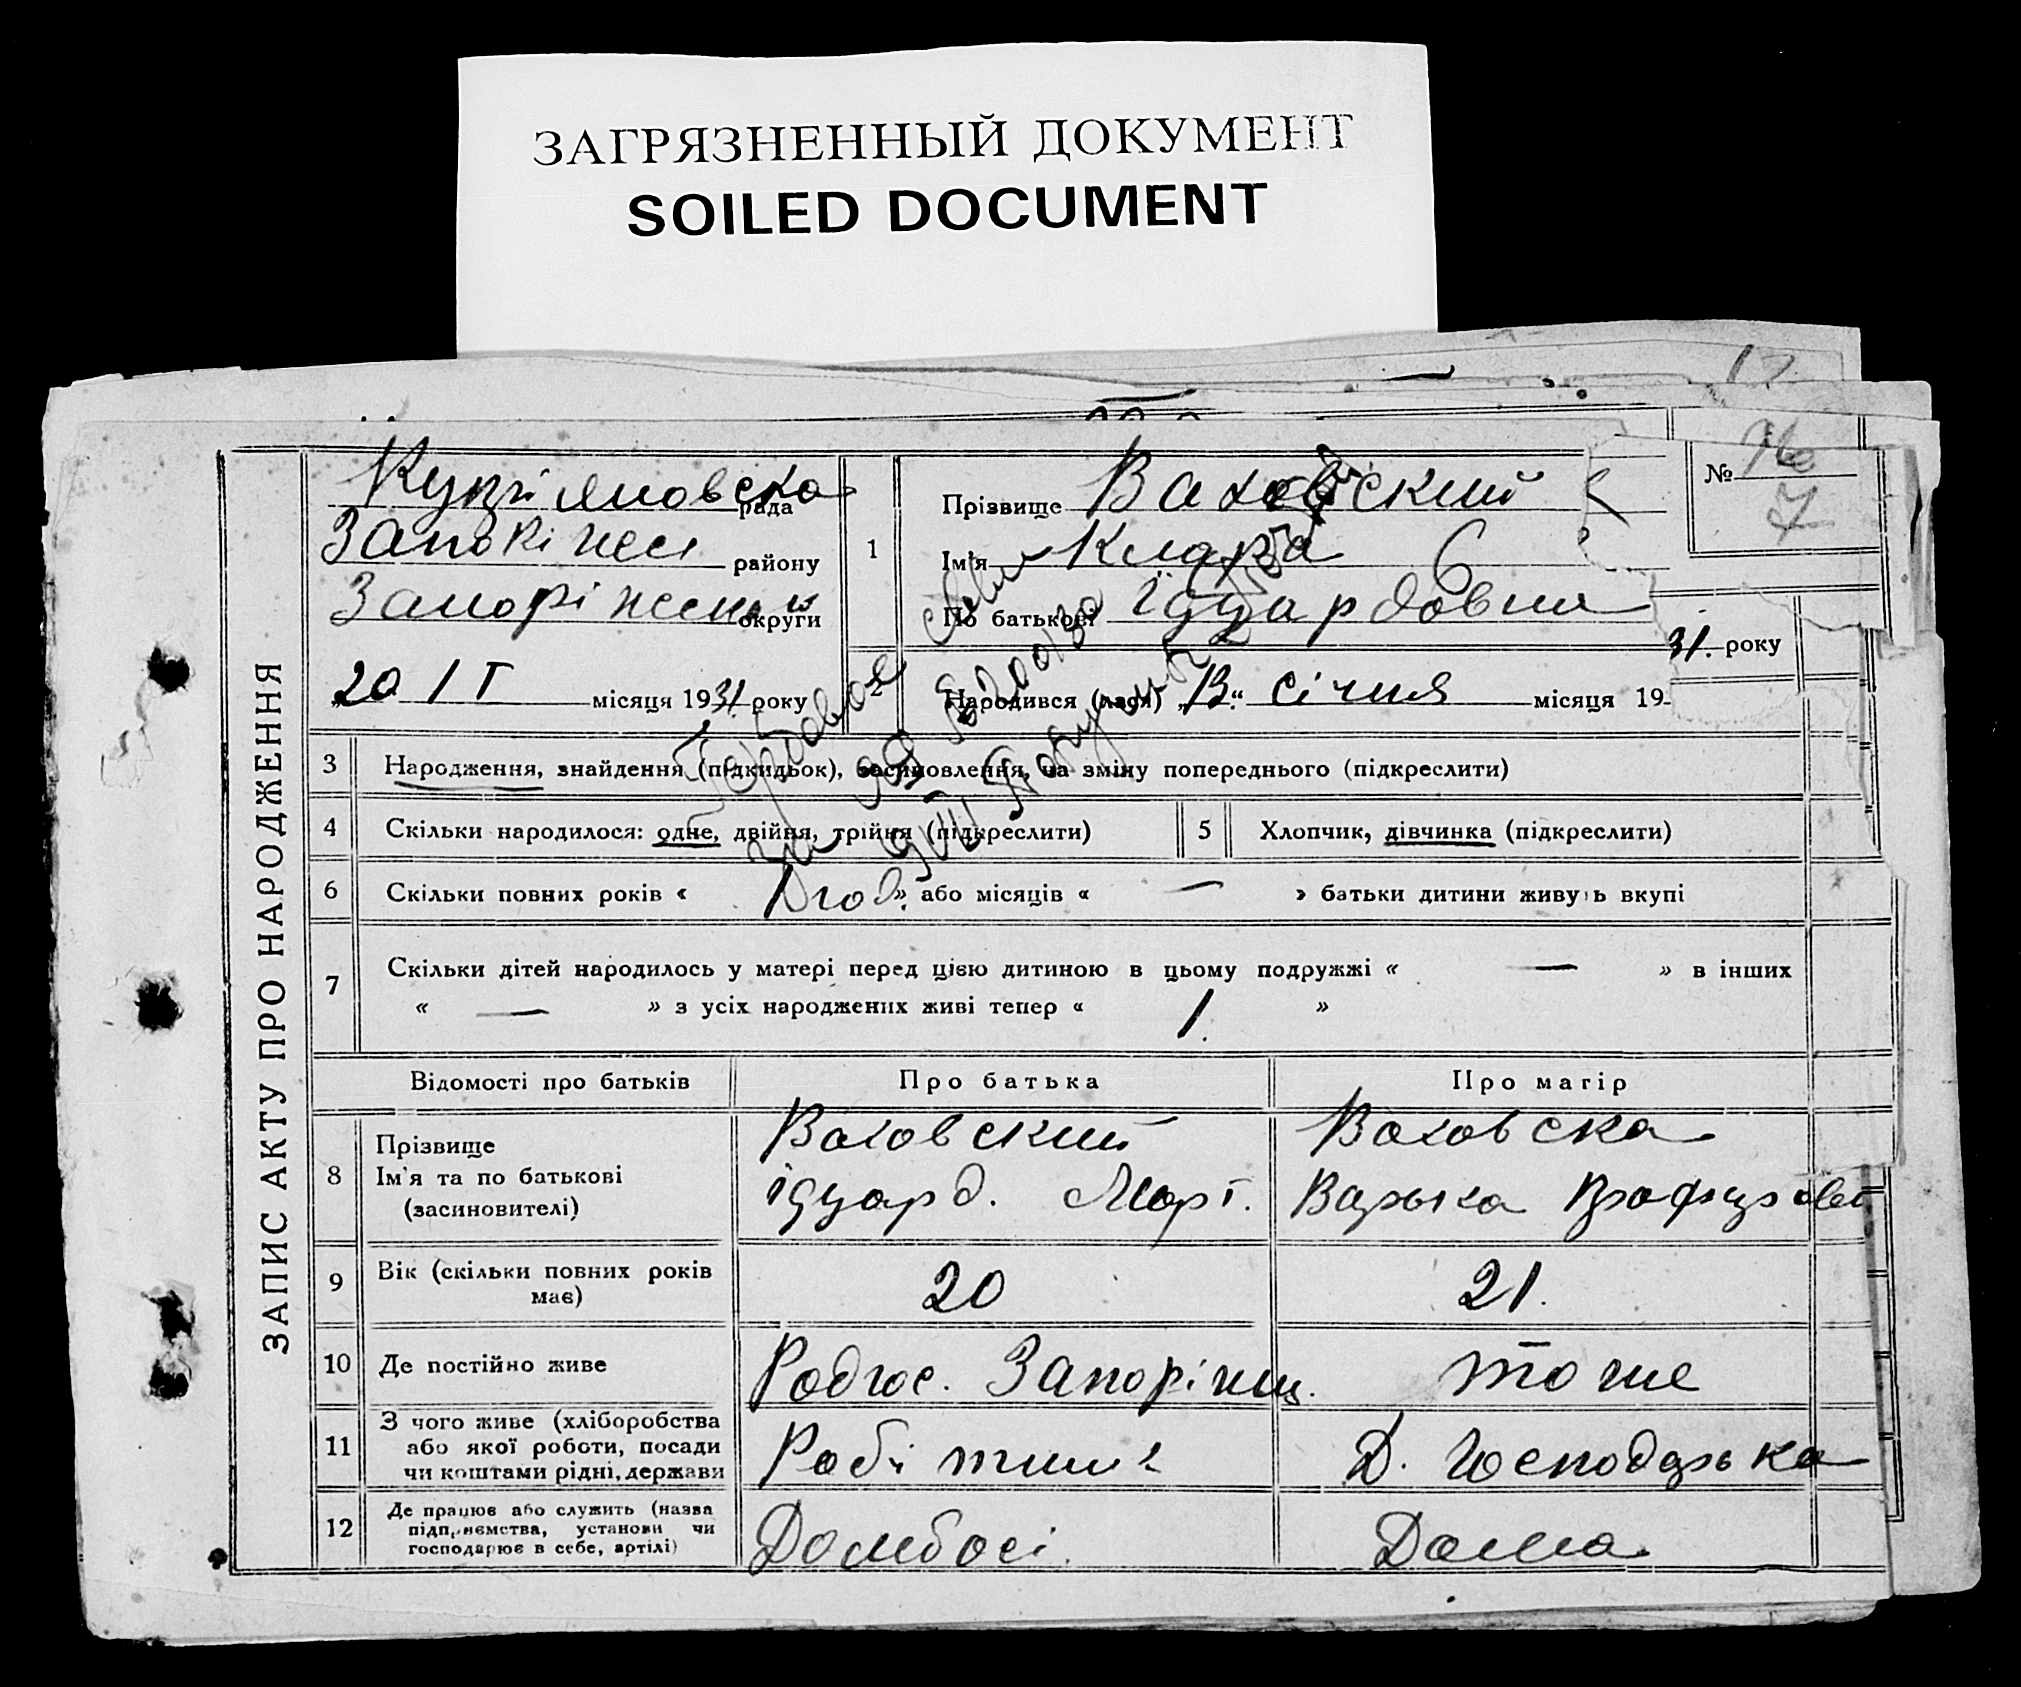 ЗАГРЯЗНЕННЫЙ ДОКУМЕНТ
SOILED DOCUMENT
ЗАПИС АКТУ ПРО НАРОДЖЕННЯ
рада
району
округи
20 I місяця 1931 року
№
7
1
Прізвище Ваховский
Ім'я Клара
По батькові Їдуардовна
2 Народився (лася) „13“ Січня місяця 19
31. року
3 Народження, знайдення (підкидьок), засиновлення, на зміну попереднього (підкреслити)
4 Скільки народилося: одне, двійня, трійня (підкреслити)
5 Хлопчик, дівчинка (підкреслити)
6 Скільки повних років « » або місяців « — » батьки дитини живуть вкупі
7 Скільки дітей народилось у матері перед цією дитиною в цьому подружжі « — » в інших
« — » з усіх народжених живі тепер « 1. »
Відомості про батьків Про батька Про матір
8 Прізвище
Ім'я та по батькові
(засиновителі)
Ваховский
Ідуард. Март.
Ваховска
Варька
9 Вік (скільки повних років
має)
20
21.
10 Де постійно живе
Радгос. Запоріжц.
тоже
11 З чого живе (хліборобства
або якої роботи, посади
чи коштами рідні, держави
Робітник
Д. Господарька
12 Де працює або служить (назва
підприємства, установи чи
господарює в себе, артілі)
Дома